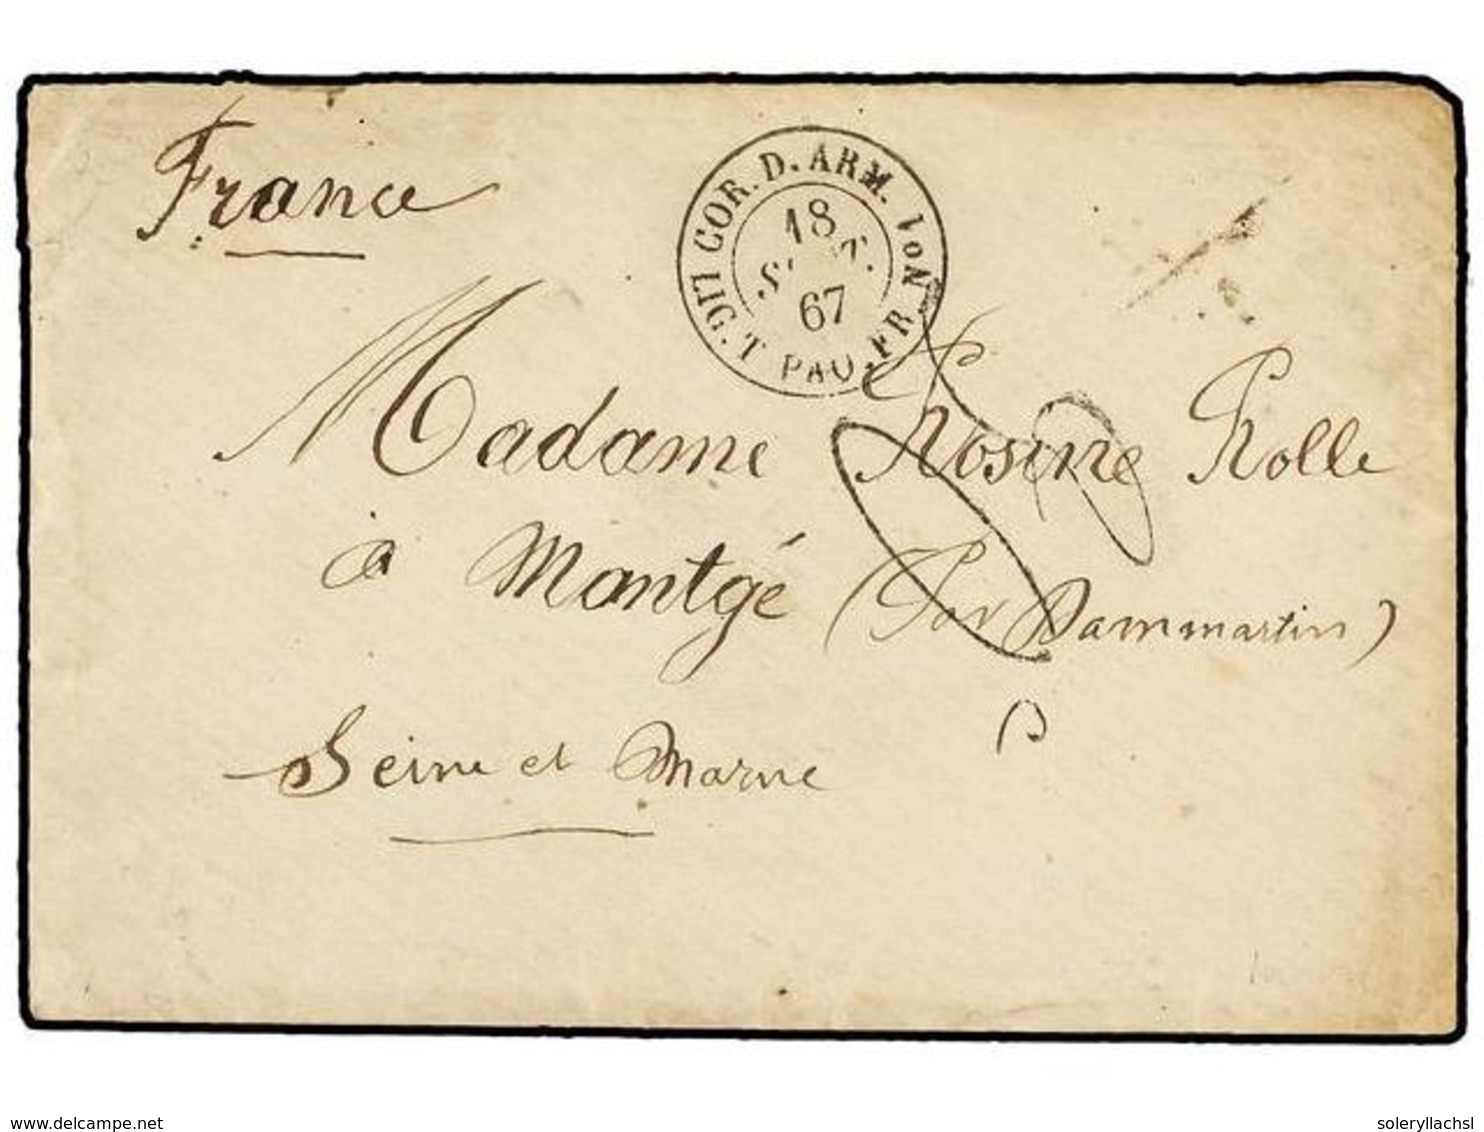 France
LIG. T COR. D. ARM.
PAQ. FR No 1
18
67
Madame Rosine Rolle
à Montgé (Par Dammartin)
Seine et Marne
www.delcampe.net
soleryllachsl